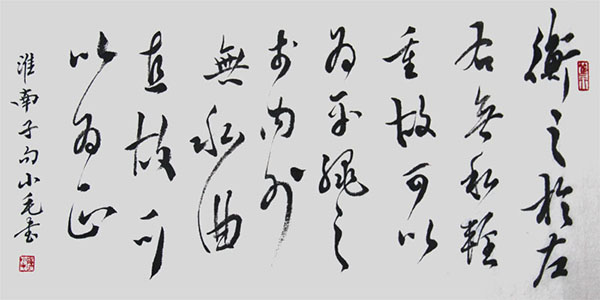 衡之於左
右無私輕
重故可以
為平繩之
於内外
無私曲
直故可
以為正
淮南子句小毛書